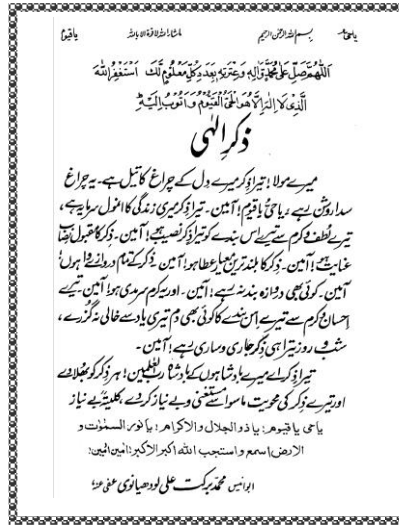 یا حیّ بسم اللہ الرحمٰن الرحیم ماشاء اللہ لا قوۃ الا باللہ یا قیوم
اَللّٰھُمَّ صَلِّ عَلٰی مُحَمَّدٍ وَّاٰلِہٖ وَعِتْرَتِہٖ بِعَدَدِ کُلِّ مَعْلُوْمٍ لَّکَ اَسْتَغْفِرُ اللہَ
الَّذِیْ لَا اِلٰہَ اِلَّا ھُوَ الْحَیُّ الْقَیُّوْمُ وَاَتُوْبُ اِلَیْہِ
ذکرِ الٰہی
میرے مولا! تیرا ذکر میرے دل کے چراغ کا تیل ہے۔ یہ چراغ
سدا روشن رہے، یا حیّ یا قیوم! آمین۔ تیرا ذکر میری زندگی کا انمول سرمایہ ہے،
تیرے لطف و کرم سے تیرے اس بندے کو تیرا ذکر نصیب رہے! آمین۔ ذکر کا مقبول نصاب
عنایت ہے! آمین۔ ذکر کا بلند ترین معیار عطا ہو! آمین۔ ذکر کے تمام دروازے وا ہوں!
آمین۔ کوئی بھی دروازہ بند نہ رہے! آمین۔ اور یہ کرم سرمدی ہو! آمین۔ تیرے
احسان و کرم سے تیرے اس بندے کا کوئی بھی دم تیری یاد سے خالی نہ گزرے،
شب و روز تیرا ہی ذکر جاری و ساری رہے! آمین۔
تیرا ذکر اے میرے بادشاہوں کے بادشاہ رب العٰلمین! ہر ذکر کو بھلا دے
اور تیرے ذکر کی محویت ماسوا سے مستغنی و بے نیاز کر دے، کلیتہً بے نیاز
یاحی یاقیوم؛ یا ذوالجلال والاکرام؛ یا نور السمٰوٰت و
الارض؛ اسمع واستجب اللہ اکبر الاکبر؛ آمین آمین؛
ابو انیس محمد برکت علی لودھیانوی عفی عنہٗ